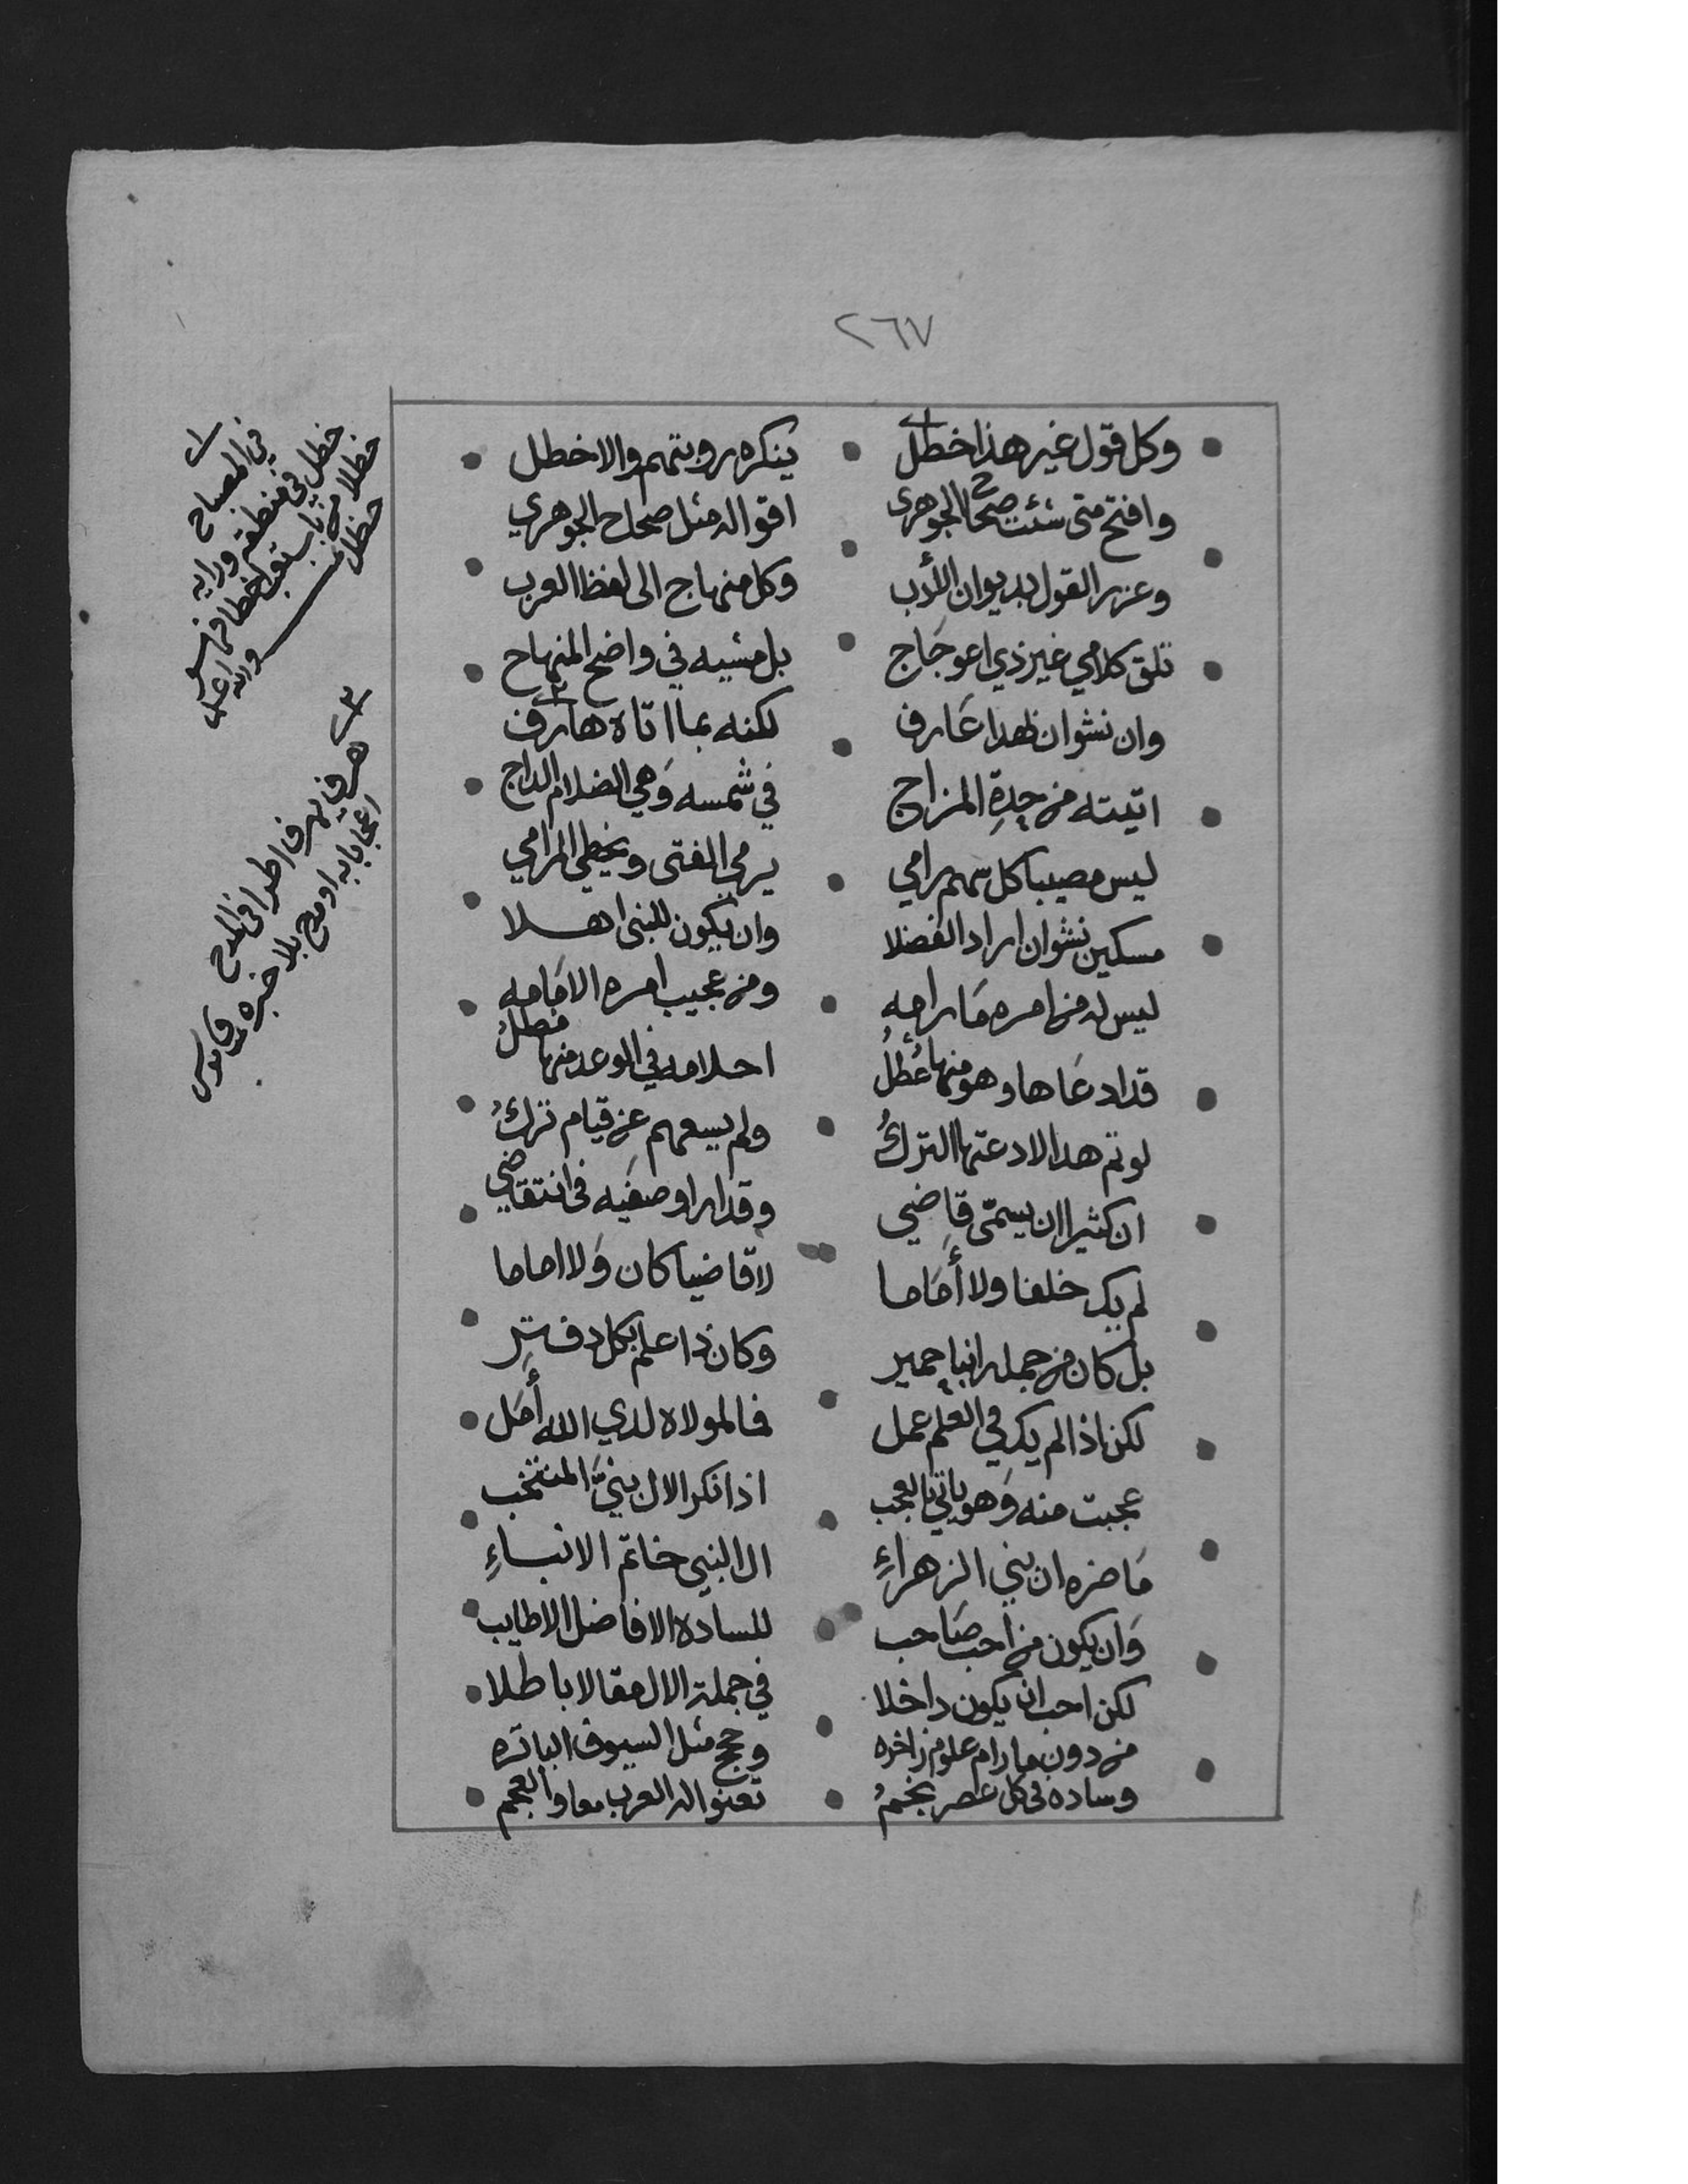 ٢٦٧
وكل قول غير هذا خطل ينكره روبتهم والاخطل
وافتح متى شئت صحاح الجوهري اقواله مثل صحاح الجوهري
وعزر القول بديوان الأدب وكل منهاج الى لفظ العرب
تلق كلامي غير ذي اعوجاج بل مشيه في واضح المنهاح
وان نشوان لهذا عارف لكنه بما اتاه هارف
اتيته من حدة المزاج في شمسه وهي الضلام الداج
ليس مصيبا كل سهم رامي يرمي الفتى ويخطي المرامي
مسكين نشوان اراد الفضلا وان يكون للنبي اهلا
ليس له من امره مارامه ومن عجيب امره الامامه
قد ادعاها وهو منها عُطُلُ احلامه في الوعد منها مطلُ
لو تم هدا لادعتها التركُ ولم يسعهم عن قيام تركُ
ان كثيرا ان يسمّى قاضي وقد اراو صفيه في انتقاضي
لم يك خلفا ولا أماما لا قاضيا كان ولا اماما
بل كان من جمله انبا حمير وكان ذا علم بكل دفتر
لكن اذا لم يك في العلم عمل فما لمولاه لدي الله أمل
عجبت منه وهو ياتي بالعجب اذ انكر الال بنيّ المنتخب
ما ضره ان بني الزهراءِ ال النبي خاتم الانبياءِ
وان يكون من احب صاحب للساده الافاضل الاطايب
لكن احب ان يكون داخلا في جملة الال مقالا باطلا
من دون ما رام علوم زاخره وحجج مثل السيوف الباتره
وساده في كل عصر نجمُ تعنو اله العرب معا والعجم
في المصباح
خطل في منطقه ورايه
خطلا من باب تعب اخطا فهو
خطل
والله اعلم
هرف يهرف اطرا في المدح
اعجابا به او مدح بلا خبره
قاموس